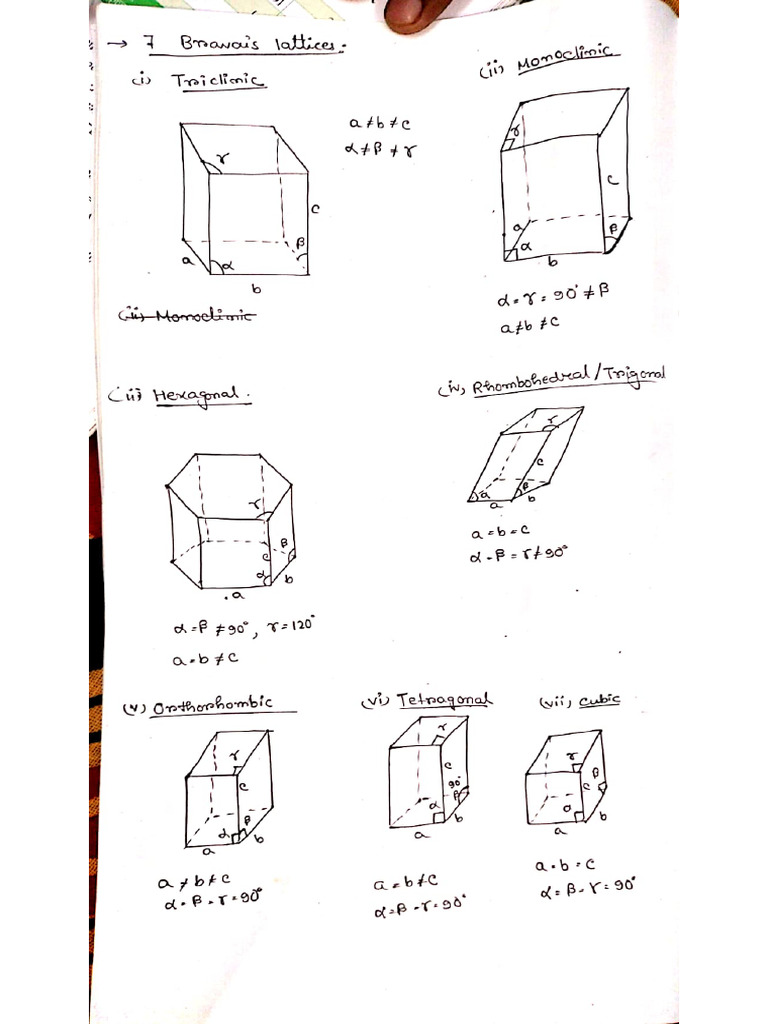 → 7 Bravais lattices.
(i) Triclinic
a ≠ b ≠ c
α ≠ β ≠ γ
γ
c
β
a
α
b
(ii) Monoclinic
γ
c
a
α
β
b
α = γ = 90° ≠ β
a ≠ b ≠ c
(ii) Monoclinic
(iii) Hexagonal.
γ
β
c
α
b
a
α = β ≠ 90°, γ = 120°
a = b ≠ c
(iv) Rhombohedral/Trigonal
γ
c
a
β
b
a
a = b = c
α = β = γ ≠ 90°
(v) Orthorhombic
γ
c
α
β
b
a
a ≠ b ≠ c
α = β = γ = 90°
(vi) Tetragonal
γ
c
90°
α
β
b
a
a = b ≠ c
α = β = γ = 90°
(vii) cubic
γ
β
c
a
b
a = b = c
α = β = γ = 90°